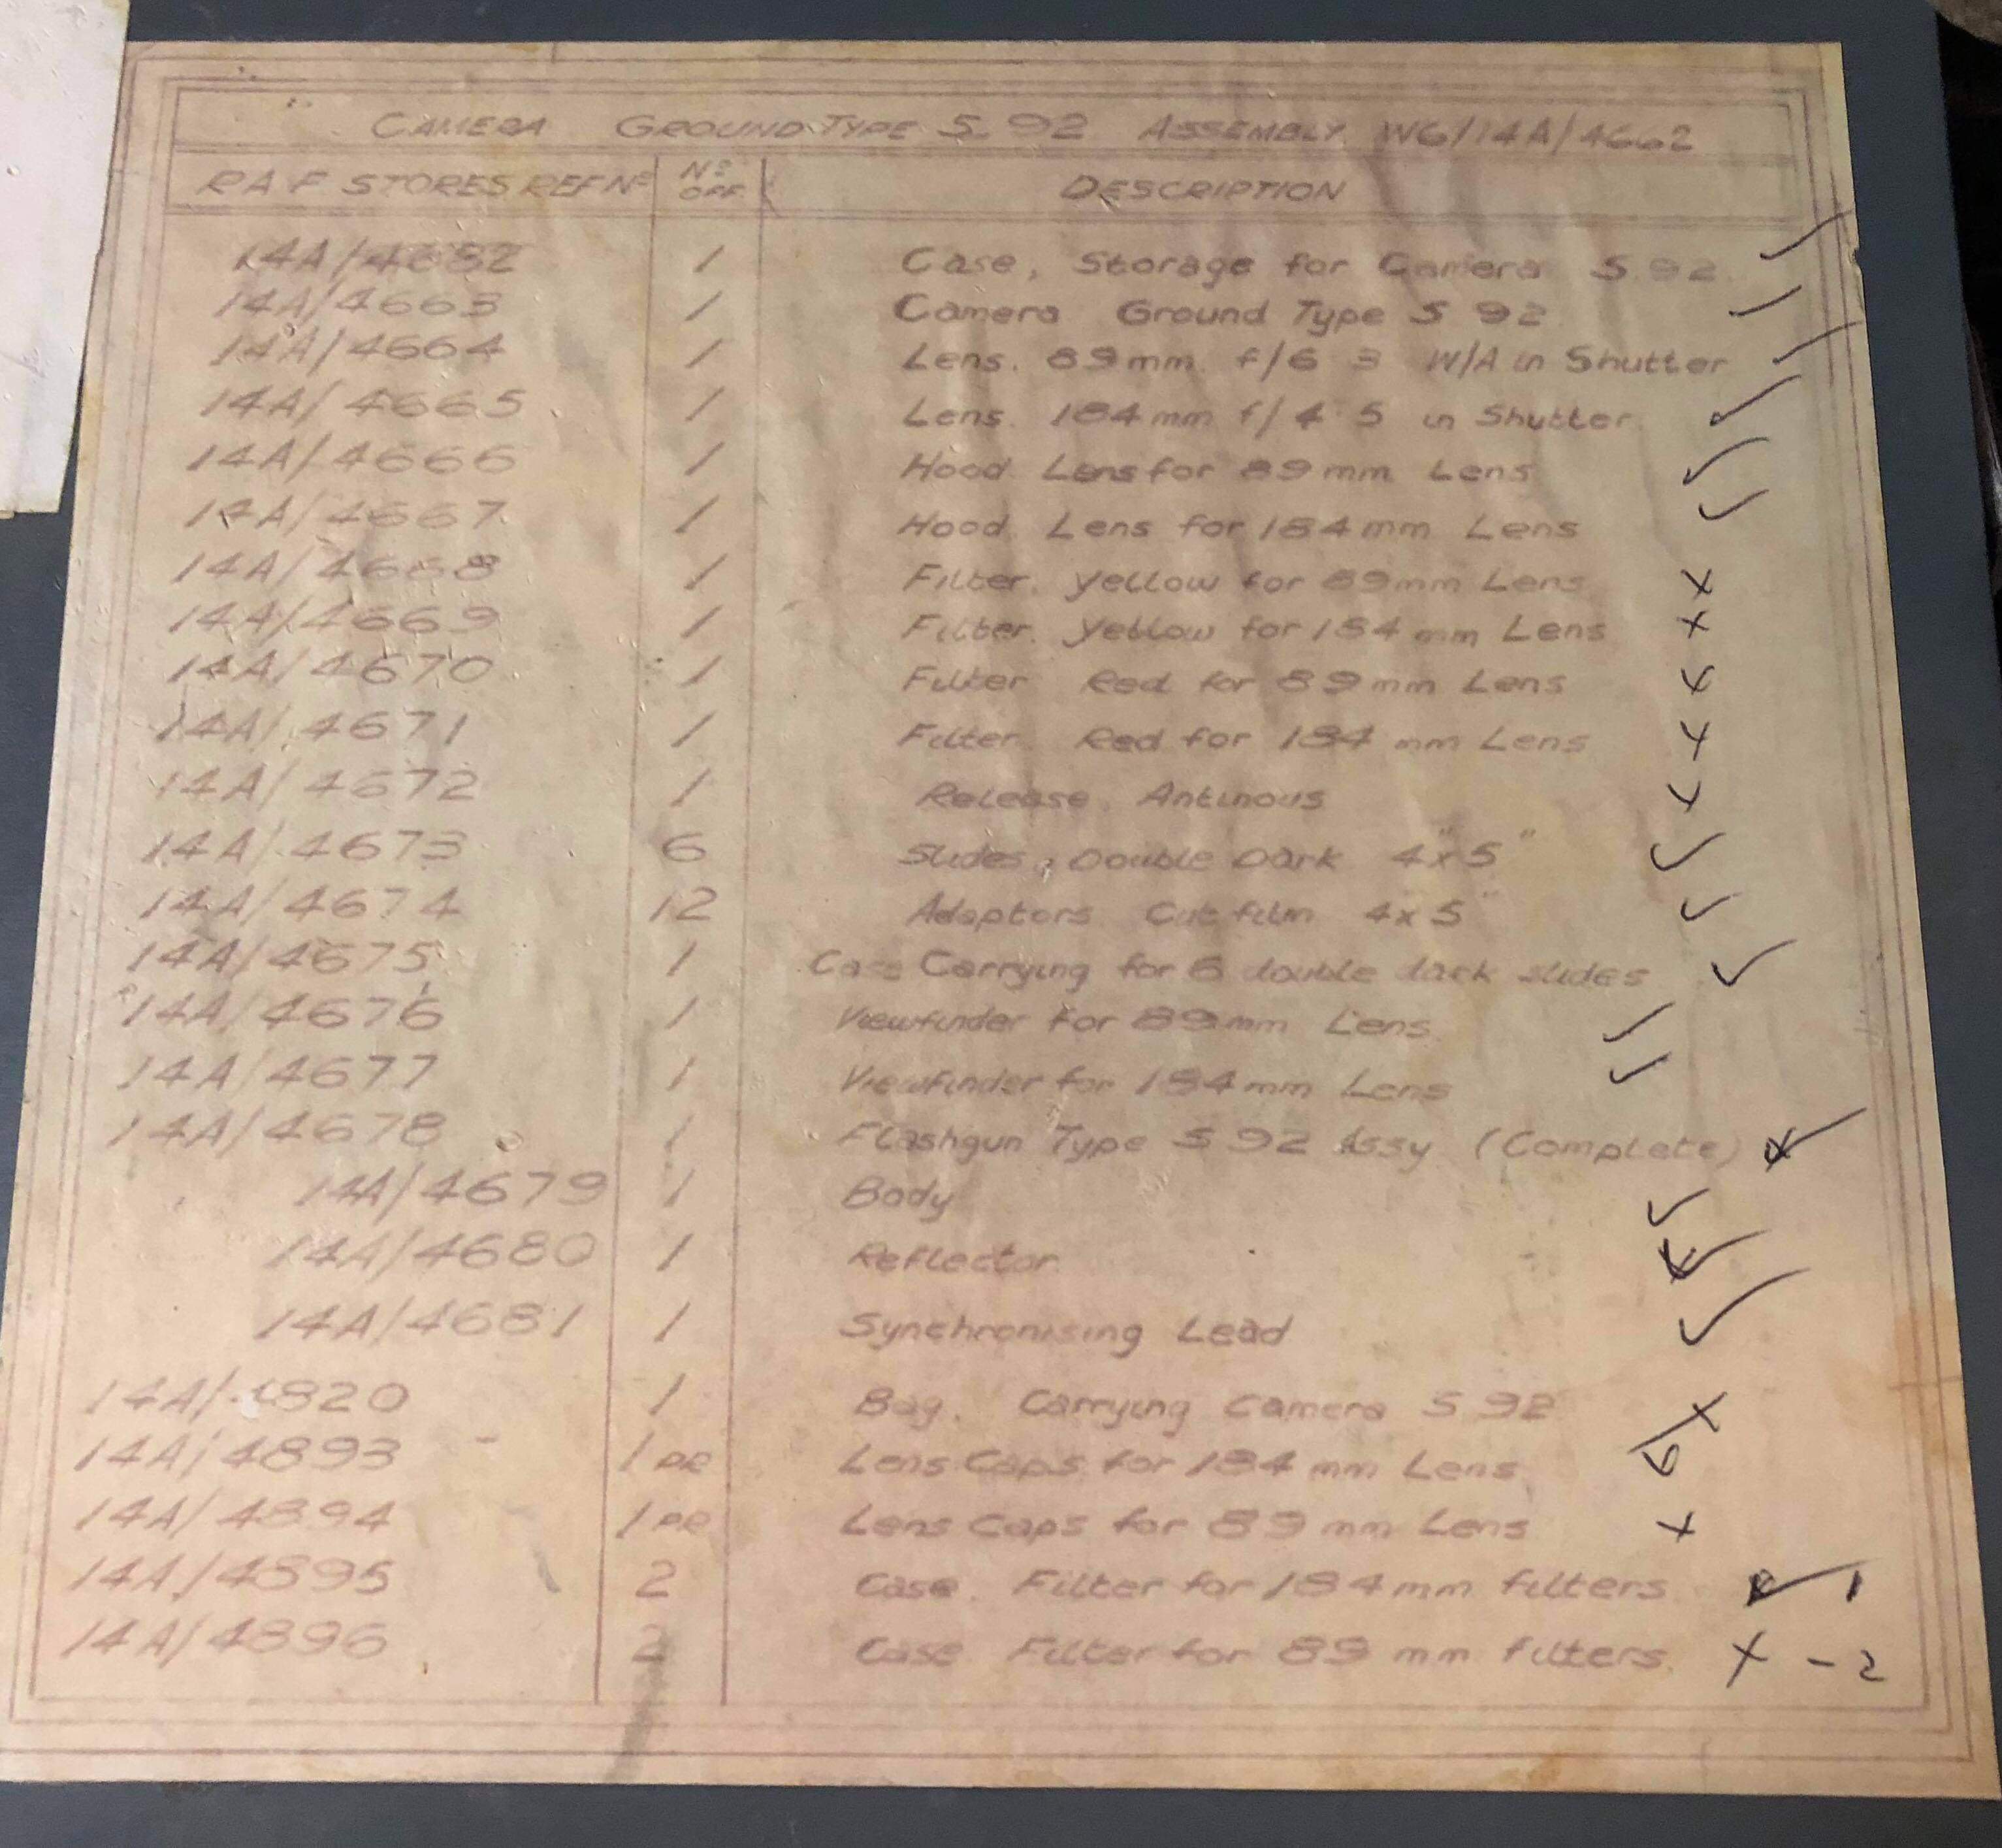 CAMERA GROUND TYPE S. 92 ASSEMBLY. W6/14A/4662
RAF STORES REF Nº Nº OFF. DESCRIPTION
14A/4682 1 Case, Storage for Camera S.92. ✓
14A/4663 1 Camera Ground Type S 92 ✓
14A/4664 1 Lens. 89mm. f/6 3 W/A in Shutter ✓
14A/4665 1 Lens. 184mm f/4·5 in Shutter. ✓
14A/4666 1 Hood. Lens for 89mm Lens ✓
14A/4667 1 Hood. Lens for 184mm Lens ✓
14A/4668 1 Filter. Yellow for 89mm Lens x
14A/4669 1 Filter. Yellow for 184 mm Lens x
14A/4670 1 Filter Red for 89mm Lens x
14A/4671 1 Filter Red for 184 mm Lens x
14A/4672 1 Release. Antinous x
14A/4673 6 Slides, Double Dark 4"x5" ✓
14A/4674 12 Adaptors Cut film 4x5" ✓
14A/4675 1 Case Carrying for 6 double dark slides ✓
14A/4676 1 Viewfinder for 89mm Lens ✓
14A/4677 1 Viewfinder for 184mm Lens ✓
14A/4678 1 Flashgun Type S 92 Assy (Complete) ✓
14A/4679 1 Body ✓
14A/4680 1 Reflector ✓
14A/4681 1 Synchronising Lead ✓
14A/4820 1 Bag. Carrying Camera S.92 x
14A/4893 1 PR Lens Caps for 184 mm Lens
14A/4894 1 PR Lens Caps for 89 mm Lens x
14A/4895 2 Case. Filter for 184mm filters ✓ 1
14A/4896 2 Case Filter for 89 mm filters. x - 2